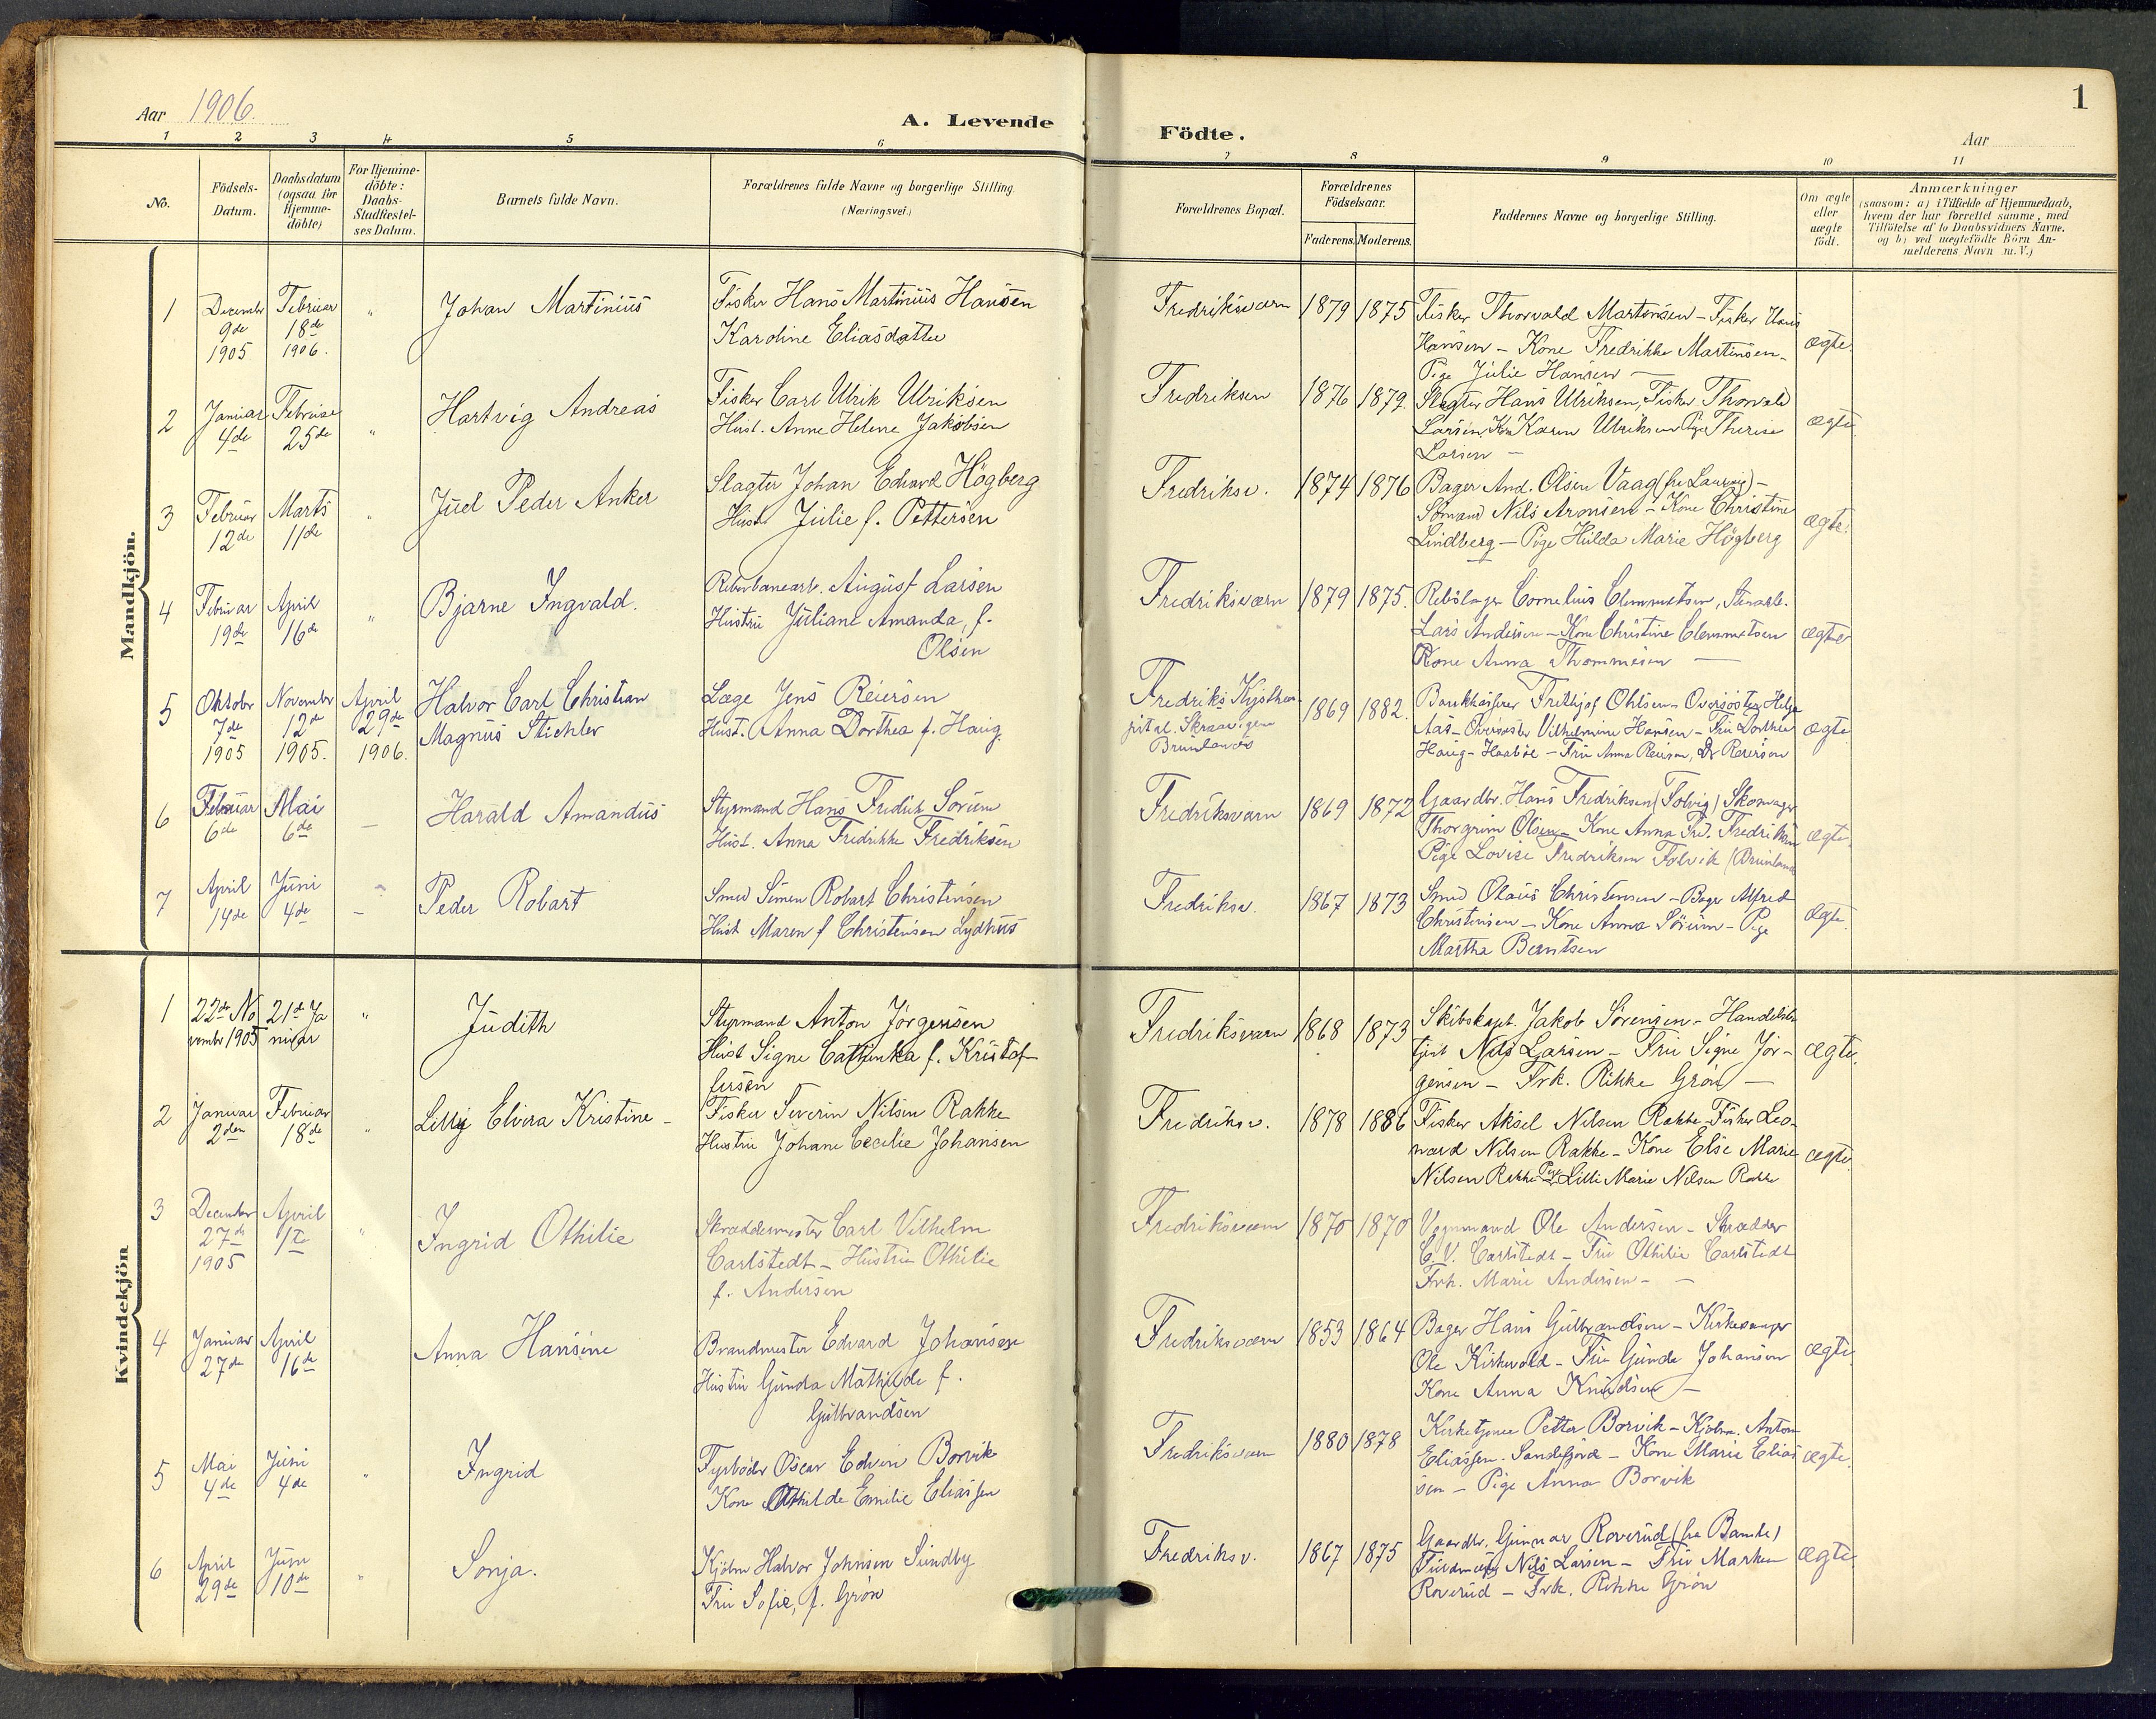 1
Aar 1906.
A. Levende Födte.
Aar
1 2 3 4 5 6 7 8 9 10 11
No.
Födsels-Datum.
Daabsdatum (ogsaa for Hjemme-döbte)
For Hjemme-döbte: Daabs-Stadfæstel-ses Datum.
Barnets fulde Navn.
Forældrenes fulde Navne og borgerlige Stilling.
(Næringsvei.)
Forældrenes Bopæl.
Forældrenes Födselsaar.
Faderens. Moderens.
Faddernes Navne og borgerlige Stilling.
Om ægte eller uægte födt.
Anmærkninger
(saasom: a) i Tilfælde af Hjemmedaab,
hvem der har forrettet samme, med
Tilföielse af to Daabsvidners Navne.
og b) ved uægtefödte Börn An-
melderens Navn m. V.)
Mandkjön.
1 Decembr 9de 1905 Februar 18de 1906. " Johan Martinius
Fisker Hans Martinius Hansen
Karoline Eliasdatter
Fredriksværn 1879 1875
Fisker Thorvald Martinsen - Fisker Hans
Hansen - Kone Fredrikke Martinsen -
Pige Julie Hansen -
ægte.
2 Januar 4de Februar 25de " Hartvig Andreas
Fisker Carl Ulrik Ulriksen
Hust. Anne Helene Jakobsen
Fredriksv 1876 1879.
Slagter Hans Ulriksen, Fisker Thorvald
Larsen, Kone Karen Ulriksen Pige Therese
Larsen -
ægte.
3 Februar 12de Marts 11de " Juel Peder Anker
Slagter Johan Edvard Högberg
Hust. Julie f. Pettersen
Fredriksv. 1874 1876
Bager And. Olsen Vaag (fra Laurvig) -
Sömand Nils Aronsen - Kone Christine
Lindberg - Pige Hulda Marie Högberg
ægte.
4 Februar 19de April 16de " Bjarne Ingvald.
Reberbanearb. August Larsen
Hustru Juliane Amanda, f.
Olsen
Fredriksværn 1879 1875.
Rebslager Cornelius Clemmetsen, Stenarb.
Lars Andersen - Kone Christine Clemmetsen
Kone Anna Thommesen -
ægte
5 Oktobr 7de 1905 Novembr 12de 1905. April 29de 1906.
Halvor Carl Christian
Magnus Stichler
Læge Jens Reiersen
Hust. Anna Dorthea f. Haug.
Fredriks Kysthos-
pital. Skraavigen
Brunlanæs
1869 1882.
Bankkasserer Frithjof Ohlsen - Oversöster Helga
Aas - Oversöster Vilhelmine Hansen - Fru Dorthea
Haug - Haabøe - Fru Anna Reiersen, Dr Reiersen
ægte
6 Februar 6de Mai 6de - Harald Amandus
Styrmand Hans Fredrik Sörum
Hust. Anna Fredrikke Fredriksen
Fredriksværn 1869 1872
Gaardbr. Hans Fredriksen (Tolvig) Skomager
Thorgrim Olsen - Kone Anna Fred. Fredriksen
Pige Lovise Fredriksen Tolvik (Brunlanæs
ægte.
7 April 14de Juni 4de - Peder Robart
Smed Simen Robart Christensen
Hust Maren f Christensen Lydhus
Fredriksv. 1867 1873
Smed Olaus Christensen - Bager Alfred
Christensen - Kone Anna Sörum - Pige
Martha Berntsen
Ægte.
Kvindekjön
1 22de No vembr 1905 21de Ja nuar " Judith
Styrmand Anton Jörgensen
Hust Signe Cathinka f. Kristof-
fersen
Fredriksværn 1868 1873
Skibskapt. Jakob Sörensen - Handelsbe-
tjent Nils Larsen - Fru Signe Jör-
gensen - Frk. Rikke Grön -
Ægte.
2 Januar 2den Februar 18de " Lilly Elvira Kristine -
Fisker Severin Nilsen Rakke
Hustru Johane Cecilie Johansen
Fredriksv. 1878 1886
Fisker Aksel Nilsen Rakke - Fisker Leo-
nard Nilsen Rakke - Kone Else Marie
Nilsen Rakke - Pige Lilli Marie Nilsen Rakke
ægte.
3 December 27de 1905 April 1te " Ingrid Othilie
Skræddermester Carl Vilhelm
Carlstedt - Hustru Othilie
f. Andersen
Fredriksværn 1870 1870
Vognmand Ole Andersen - Skrædder
C. V. Carlstedt - Fru Othilie Carlstedt
Frk. Marie Andersen - -
4 Januar 27de April 16de Anna Hansine
Brandmester Edvard Johansen
Hustru Gunda Mathilde f.
Gulbrandsen
Fredriksværn 1853 1864
Bager Hans Gulbrandsen - Kirkesanger
Ole Kirkevold - Fru Gunda Johansen
Kone Anna Knudsen -
ægte.
5 Mai 4de Juni 4de " Ingrid
Fyrböder Oscar Edvin Borvik
Kone Othilde Emilie Eliassen
Fredriksværn 1880 1878
Kirketjener Petter Borvik - Kjöbm. Anton
Eliassen. Sandefjord - Kone Marie Elias
sen - Pige Anna Borvik
ægte.
6 April 29de Juni 10de " Sonja.
Kjöbm Halvor Johnsen Sundby
Fru Sofie, f. Grön
Fredriksv. 1867 1875
Gaardbr. Gunnar Roverud (fra Bamle)
Nils Larsen - Fru Marken
Roverud - Frk. Rikke Grön
ægte